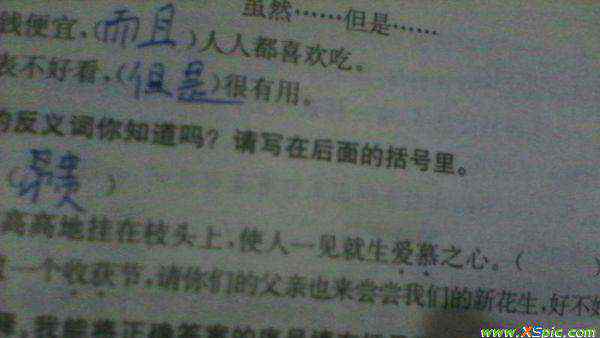 虽然……但是……
钱便宜，(而且)人人都喜欢吃。
不好看，(但是)很有用。
的反义词你知道吗？请写在后面的括号里。
(昂贵)
高高地挂在枝头上，使人一见就生爱慕之心。( )
一个收获节，请你们的父亲也来尝尝我们的新花生，好不
www.XSpic.com